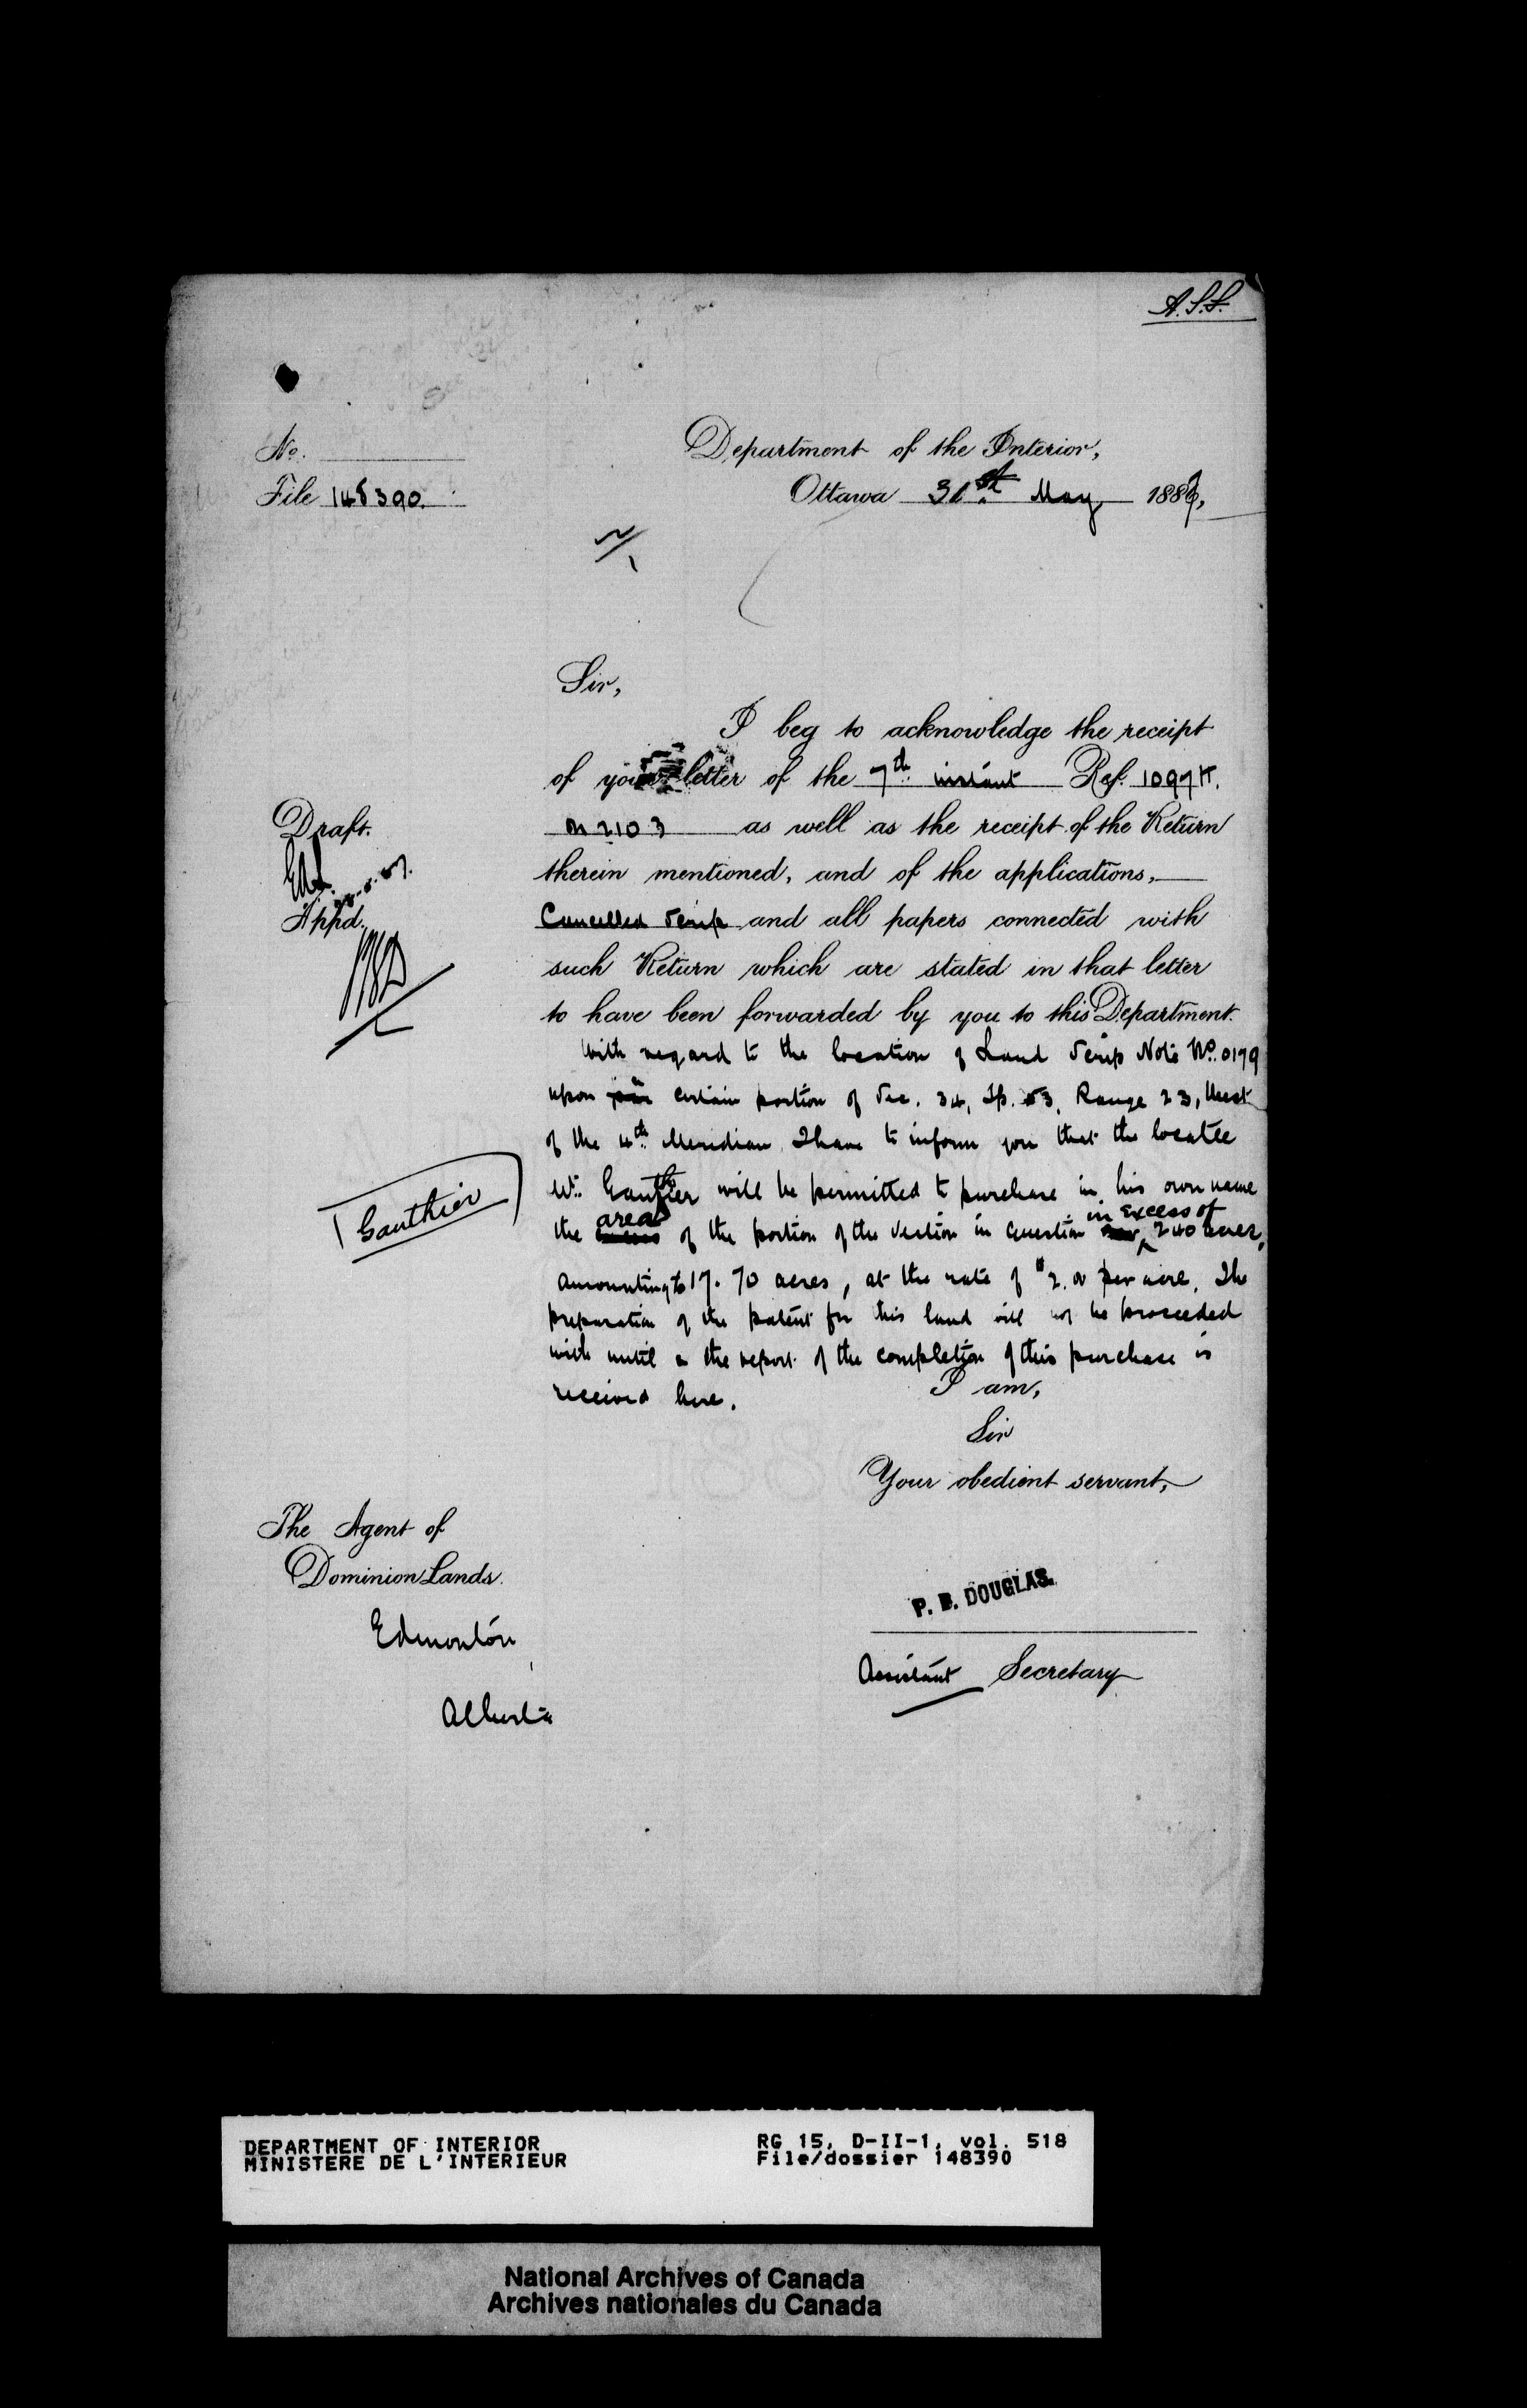 A.S.S.
No.
File 148390.
Department of the Interior,
Ottawa 31st May 1887,
Sir,
I beg to acknowledge the receipt
of your letter of the 7th instant Ref. 1097 H.
on 2103 as well as the receipt of the Return
therein mentioned, and of the applications,
Cancelled Scrip and all papers connected with
such Return which are stated in that letter
to have been forwarded by you to this Department.
Draft.
Appd.
With regard to the location of Land Scrip Note No. 0179
upon a certain portion of Sec. 34, Tp. 53, Range 23, West
of the 4th Meridian, I have to inform you that the locatee
Gauthier will be permitted to purchase in his own name
Gauthier
the area of the portion of the Section in question in excess of 240 acres,
amounting to 17.70 acres, at the rate of $2.00 per acre. The
preparation of the patent for this land will not be proceeded
with until the report of the completion of this purchase is
received here.
I am,
Sir
Your obedient servant,
The Agent of
Dominion Lands.
Edmonton
Alberta
P. B. DOUGLAS.
Assistant Secretary
DEPARTMENT OF INTERIOR
MINISTERE DE L'INTERIEUR
RG 15, D-II-1, vol. 518
File/dossier 148390
National Archives of Canada
Archives nationales du Canada